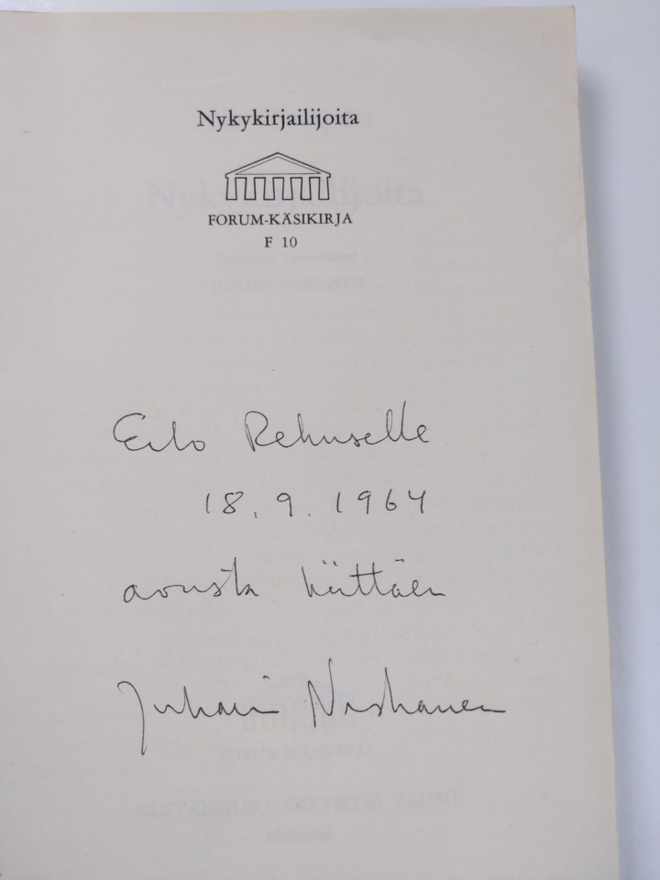 Nykykirjailijoita
FORUM-KÄSIKIRJA
F 10
Rehuselle
18.9.1964
avusta kiittäen
Juhani Niskanen